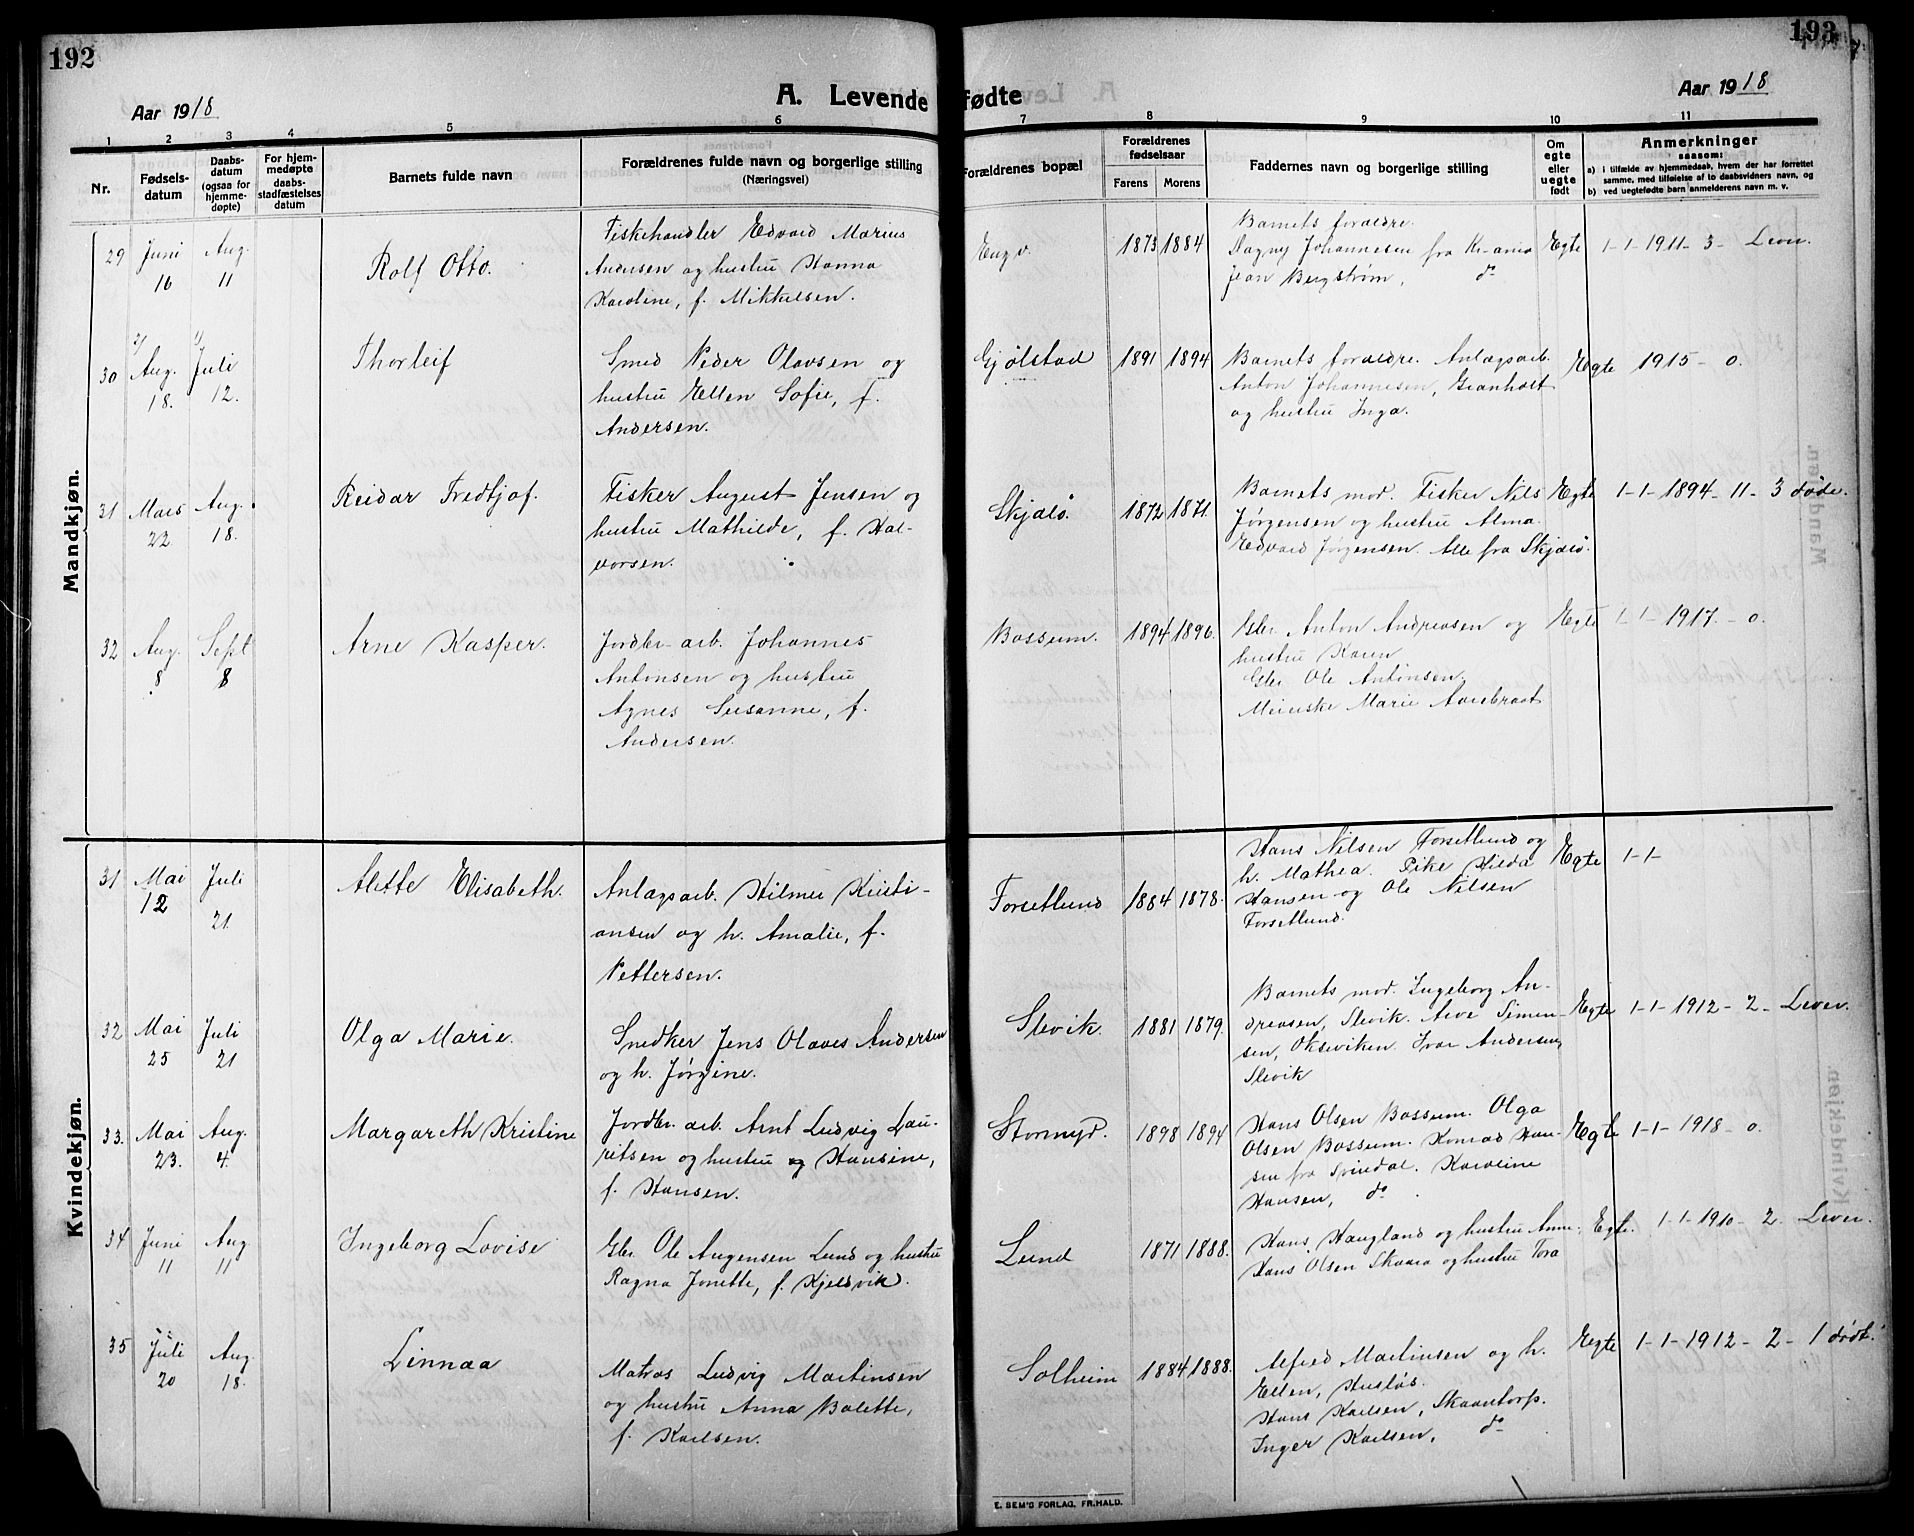 192
193
Aar 1918
A. Levende fødte
Aar 1918
1 2 3 4 5 6 7 8 9 10 11
Nr.
Fødsels-
datum
Daabs-
datum
(ogsaa for
hjemme-
døpte)
For hjem-
medøpte
daabs-
stadfæstelses
datum
Barnets fulde navn
Forældrenes fulde navn og borgerlige stilling
(Næringsvei)
Forældrenes bopæl
Forældrenes
fødselsaar
Farens Morens
Faddernes navn og borgerlige stilling
Om
egte
eller
uegte
født
Anmerkninger
saasom:
a) i tilfælde av hjemmedaab, hvem der har forrettet
samme, med tilføielse af to daabsvidners navn, og
b) ved uegtefødte barn anmelderens navn m. v.
Mandkjøn.
29
Juni
16
Aug.
11
Rolf Otto.
Fiskehandler Edvard Marius
Andersen og hustru Hanna
Karoline, f. Mikkelsen.
Engv.
1873 1884
Barnets forældre.
Dagny Johannesen fra Kr-ania
Jean Bergstrøm, do
Egte
1-1-1911-3- Lever.
30
2/
Aug.
18.
1/
Juli
12.
Thorleif
Smed Peder Olavsen og
hustru Ellen Sofie, f.
Andersen.
Gjølstad
1891 1894
Barnets forældre. Anlægsarb.
Anton Johannesen, Granholt
og hustru Inga.
Egte
1915-0.
31
Mars
22
Aug.
18.
Reidar Fredtjof.
Fisker August Jensen og
hustru Mathilde, f. Hal-
vorsen.
Skjælø
1872 1871.
Barnets mod. Fisker Nils
Jørgensen og hustru Alma.
Edvard Jørgensen. Alle fra Skjælø.
Egte
1-1-1894-11-3 døde.
32
Aug.
8
Sept
8
Arne Kasper.
Jordbr-arb. Johannes
Antonsen og hustru
Agnes Susanne, f.
Andersen.
Bossum.
1894 1896.
Gbr. Anton Andreasen og
hustru Karen
Gbr. Ole Antonsen.
Meierske Marie Aarebraat
Egte
1-1-1917.-0.
Kvindekjøn.
31
Mai
12
Juli
21
Alette Elisabeth.
Anlægsarb. Hilmer Kristi-
ansen og h. Amalie, f.
Pettersen.
Forsetlund
1884 1878.
Hans Nilsen Forsetlund og
h. Mathea. Pike Hilda
Hansen og Ole Nilsen
Forsetlund.
Egte
1-1-
32
Mai
25
Juli
21
Olga Marie.
Snedker Jens Olaves Andersen
og h. Jørgine.
Slevik.
1881 1879.
Barnets mod. Ingeborg An-
dreasen, Slevik. Arve Simen-
sen, Okseviken. Ivar Andersen,
Slevik
Egte
1-1-1912-2-Lever.
33.
Mai
23.
Aug.
4.
Margareth Kristine
Jordbr. arb. Arnt Ludvig Lau-
ritsen og hustru og Hansine,
f. Hansen.
Stormyr.
1898 1894
Hans Olsen Bossum. Olga
Olsen Bossum. Konrad Han-
sen fra Spindal. Karoline
Hansen, do.
Egte
1-1-1918-0.
34
Juni
11
Aug
11
Ingeborg Lovise
Gbr. Ole Augensen Lund og hustru
Ragna Jonette, f. Kjelsvik.
Lund
1871 1888.
Hans Haugland og hustru Anne.
Hans Olsen Skaara og hustru Tora
Egte.
1-1-1910-2. Lever.
35
Juli
20
Aug.
18.
Linnæa
Matros Ludvig Martinsen
og hustru Anna Bolette,
f. Karlsen.
Solheim
1884 1888.
Alfred Martinsen og h.
Ellen, Husløs.
Hans Karlsen, Skaantorp.
Inger Karlsen, do
Egte
1-1-1912-2-1 død.
E. SEM'S FORLAG, FR.HALD.